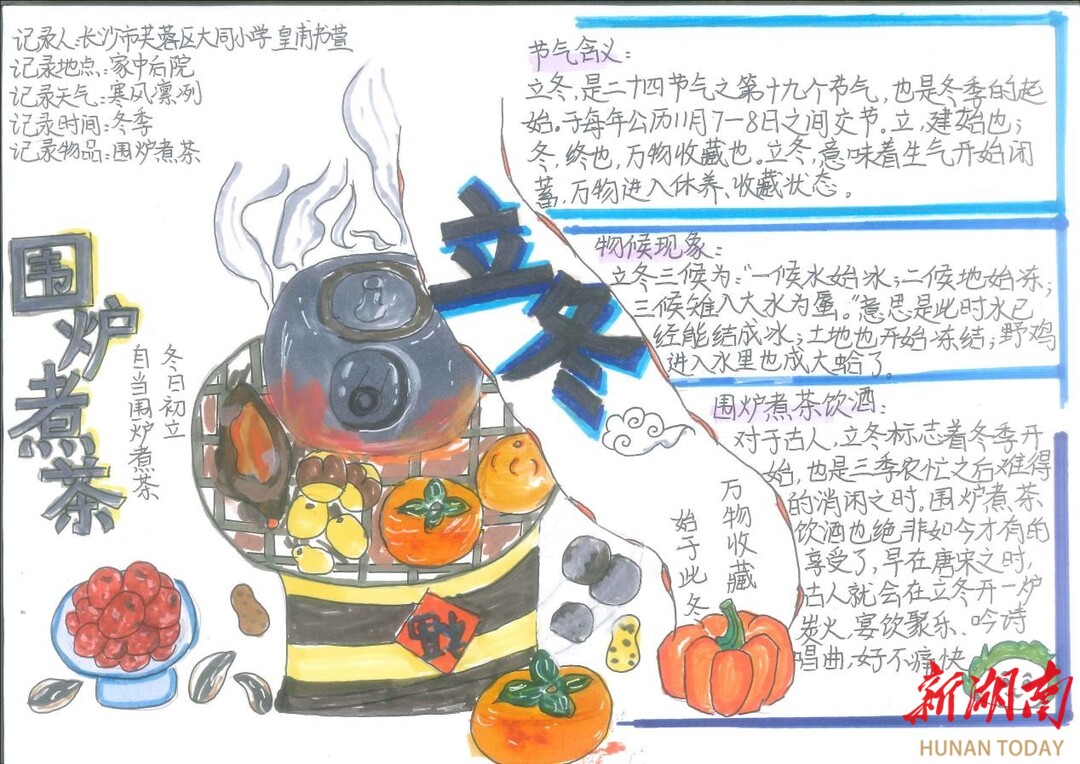 记录人:长沙市芙蓉区大同小学 皇甫书萱
记录地点:家中后院
记录天气:寒风凛冽
记录时间:冬季
记录物品:围炉煮茶
围炉煮茶
冬日初立
自当围炉煮茶
立冬
节气含义:
立冬,是二十四节气之第十九个节气,也是冬季的起
始。于每年公历11月7-8日之间交节。立,建始也;
冬,终也,万物收藏也。立冬,意味着生气开始闭
蓄,万物进入休养、收藏状态。
物候现象:
立冬三候为:"一候水始冰;二候地始冻;
三候雉入大水为蜃。"意思是此时水已
经能结成冰;土地也开始冻结;野鸡
进入水里也成大蛤了。
围炉煮茶饮酒:
对于古人,立冬标志着冬季开
始,也是三季农忙之后难得
的消闲之时。围炉煮茶
饮酒也绝非如今才有的
享受了,早在唐宋之时,
古人就会在立冬开一炉
炭火,宴饮聚乐、吟诗
唱曲,好不痛快
万物收藏
始于此冬
新湖南
HUNAN TODAY